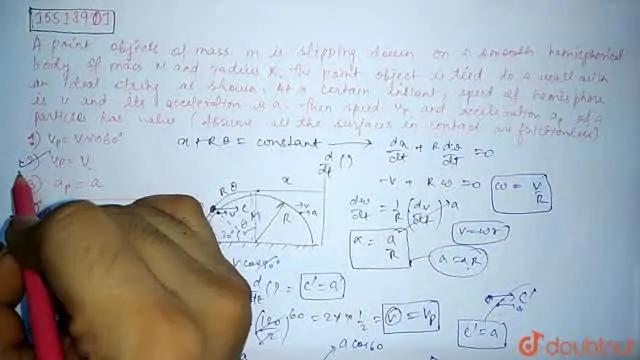 15518901
A point objects of mass m is slipping down on a smooth hemispherical
body of mass M and radius R. The point object is tied to a wall with
an ideal string as shown. At a certain instant, speed of hemisphere
is v and its acceleration is a. Then speed vp and acceleration ap of a
particles has value (Assume all the surfaces in contact are frictionless)
1) vp = v sin60°
x + Rθ = constant → dx/dt + R dθ/dt = 0
vp = v
d/dt ( )
-v + Rω = 0
ω = v/R
ap = a
Rθ
x
dω/dt = 1/R (dv/dt) a
v
C
M
R
a
θ
30°
v = ωr
α = a/R
a = αR
v cos60°
d/dt ( ) = c' = a
c'
60 = 2v x 1/2 = v = vp
c' = a
a cos60
doubtnut